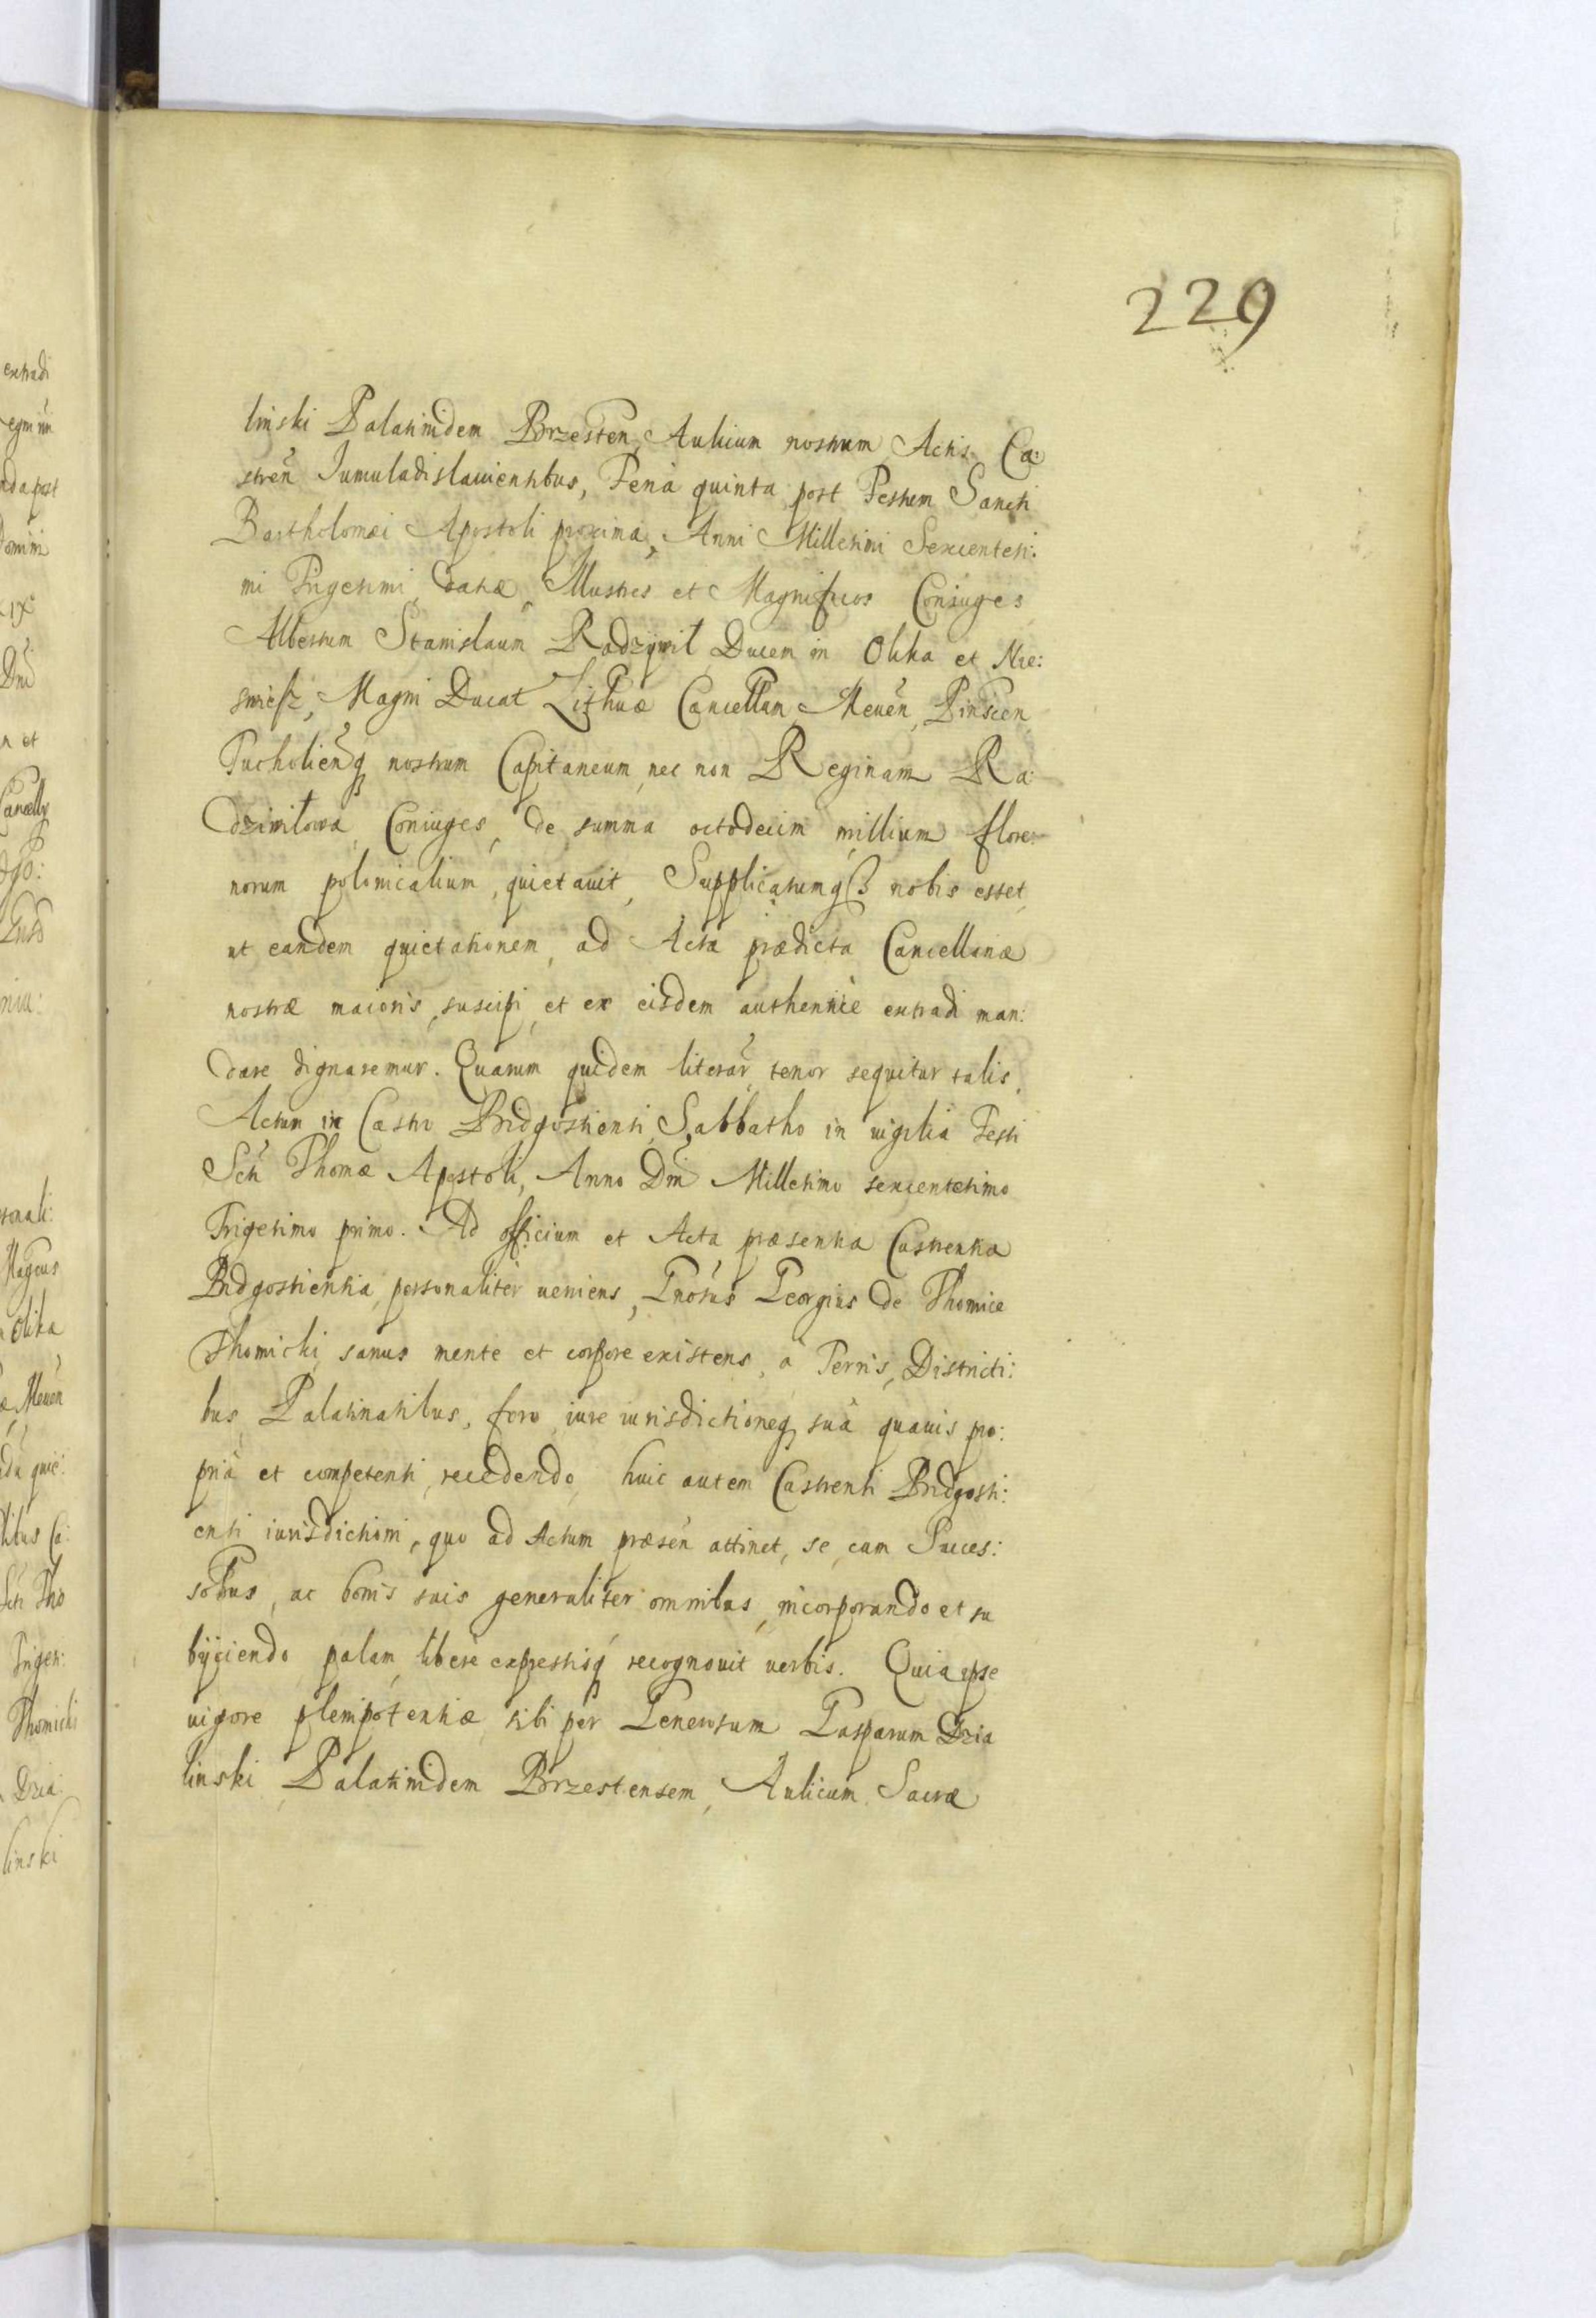 229
linski Palatinidem Brzesten, Aulicum nostrum, Actis Ca:
stren̄ Iuniuladislauiensibus, Feria quinta post Festum Sancti
Bartholomæi Apostoli proxima, Anni Millesimi Sexcentesi:
mi Trigesimi, datæ, Illustres et Magnificos Coniuges
Albertum Stanislaum Radzywil Ducem in Olika et Nie:
swiesz, Magni Ducat Lithuæ Cancellar, Meuen̄, Pinscen,
Tucholien̄q nostrum Capitaneum, nec non Reginam Ra:
dziwilowa, Coniuges, de summa octodecim millium flore:
norum polonicalium, quietauit, Supplicatumqȝ nobis esset,
ut eandem quietationem, ad Acta prædicta Cancellariæ
nostræ maioris, suscipi, et ex eisdem authenticè extradi man:
dare dignaremur. Quarum quidem literar̄ tenor sequitur talis,
Actum in Castro Bidgostiensi, Sabbatho in uigilia Festi
Scti Thomæ Apostoli, Anno Dni Millesimo sexcentesimo
Trigesimo primo. Ad officium et Acta præsentia Castrensia
Bidgostiensia, personaliter ueniens, Gnosus Georgius de Thomice
Thomicki, sanus mente et corpore existens, à Terris, Districti:
bus, Palatinatibus, foro, iure iurisdictioneq, suâ quauis pro:
priâ et competenti, recedendo, huic autem Castrensi Bidgosti:
ensi iurisdictioni, quo ad Actum præsen̄ attinet, se, cum Succes:
sobus, ac bonis suis generaliter omnibus, incorporando et su
byiciendo, palam, libere expressisq́ recognouit uerbis. Quia ipse
uigore plenipotentiæ sibi per Generosum Gasparum Dzia
linski Palatinidem Brzestensem, Aulicum Sacræ